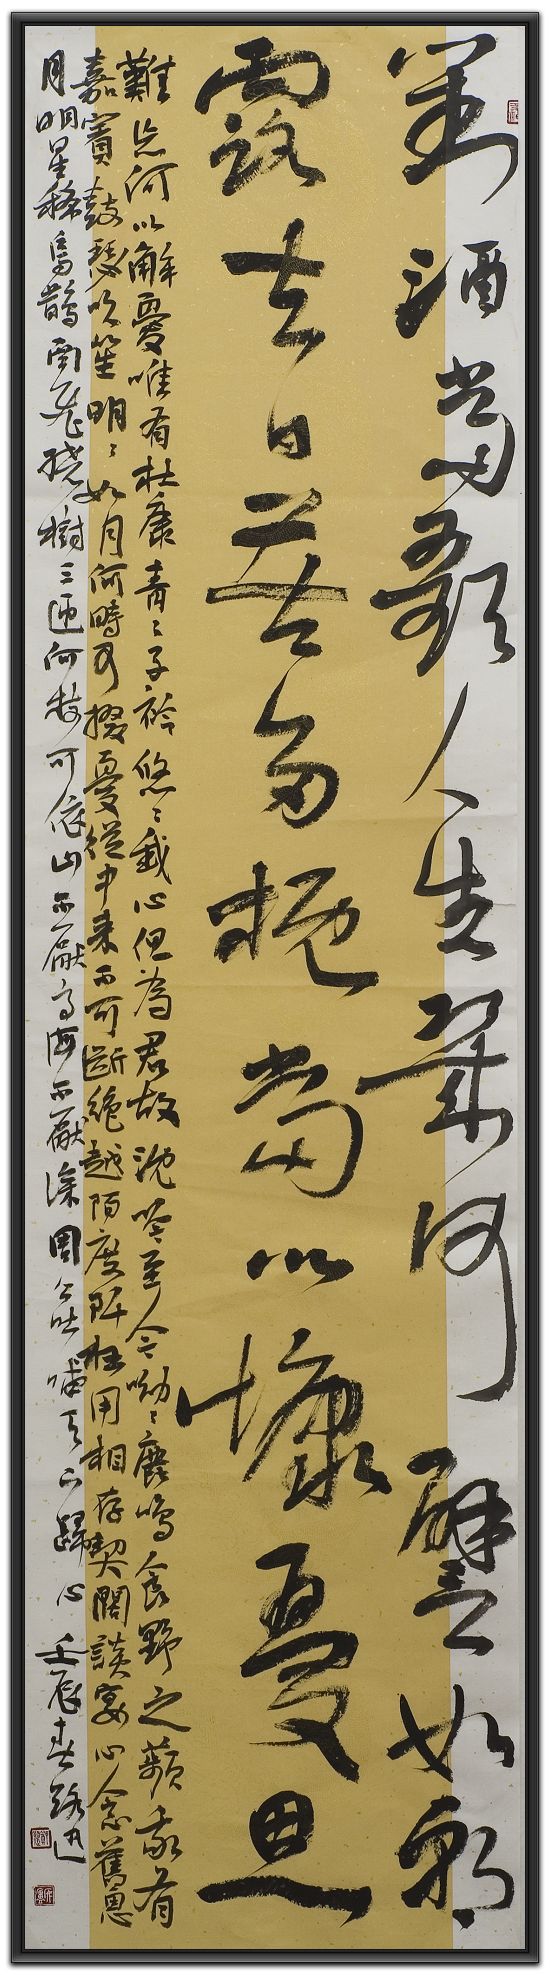 對酒當歌人生幾何譬如朝
露去日苦多慨當以慷憂思
難忘何以解憂唯有杜康青〻子衿悠〻我心但為君故沈吟至今呦〻鹿鳴食野之蘋我有
嘉賓鼓瑟吹笙明〻如月何時可掇憂從中來不可斷絕越陌度阡枉用相存契闊談宴心念舊恩
月明星稀烏鵲南飛繞樹三匝何枝可依山不厭高海不厭深周公吐哺天下歸心 壬辰春